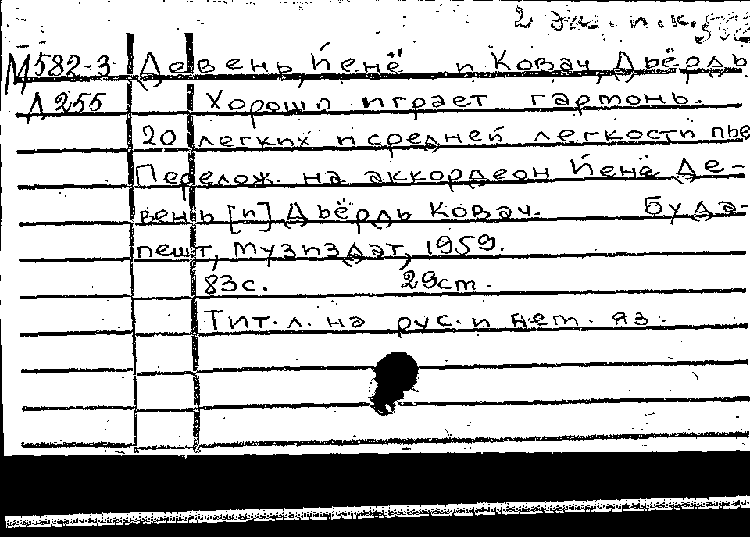 2 эк. п.к.
М582-3 Девень, Йенё и Ковач, Дьёрдь
Д255 Хорошо играет гармонь.
20 легких и средней легкости пье
Перелож. на аккордеон Йенё Де-
вень [и] Дьёрдь Ковач. Буда-
пешт, Музиздат, 1959.
83с. 29см.
Тит. л. на рус. и нем. яз.